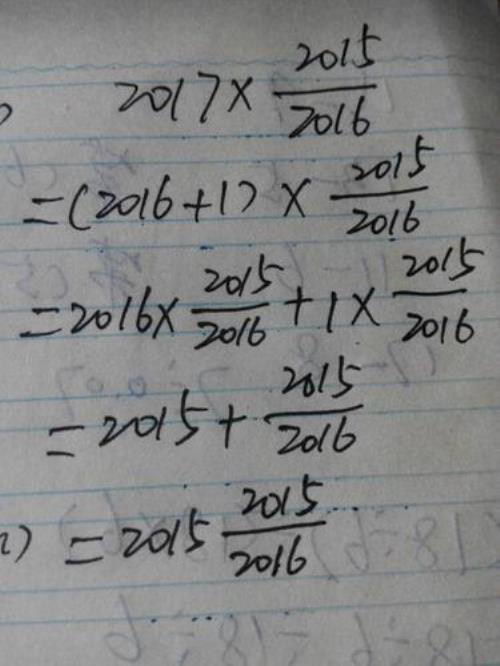 2017×2015/2016
=(2016+1)×2015/2016
=2016×2015/2016+1×2015/2016
=2015+2015/2016
=2015 2015/2016